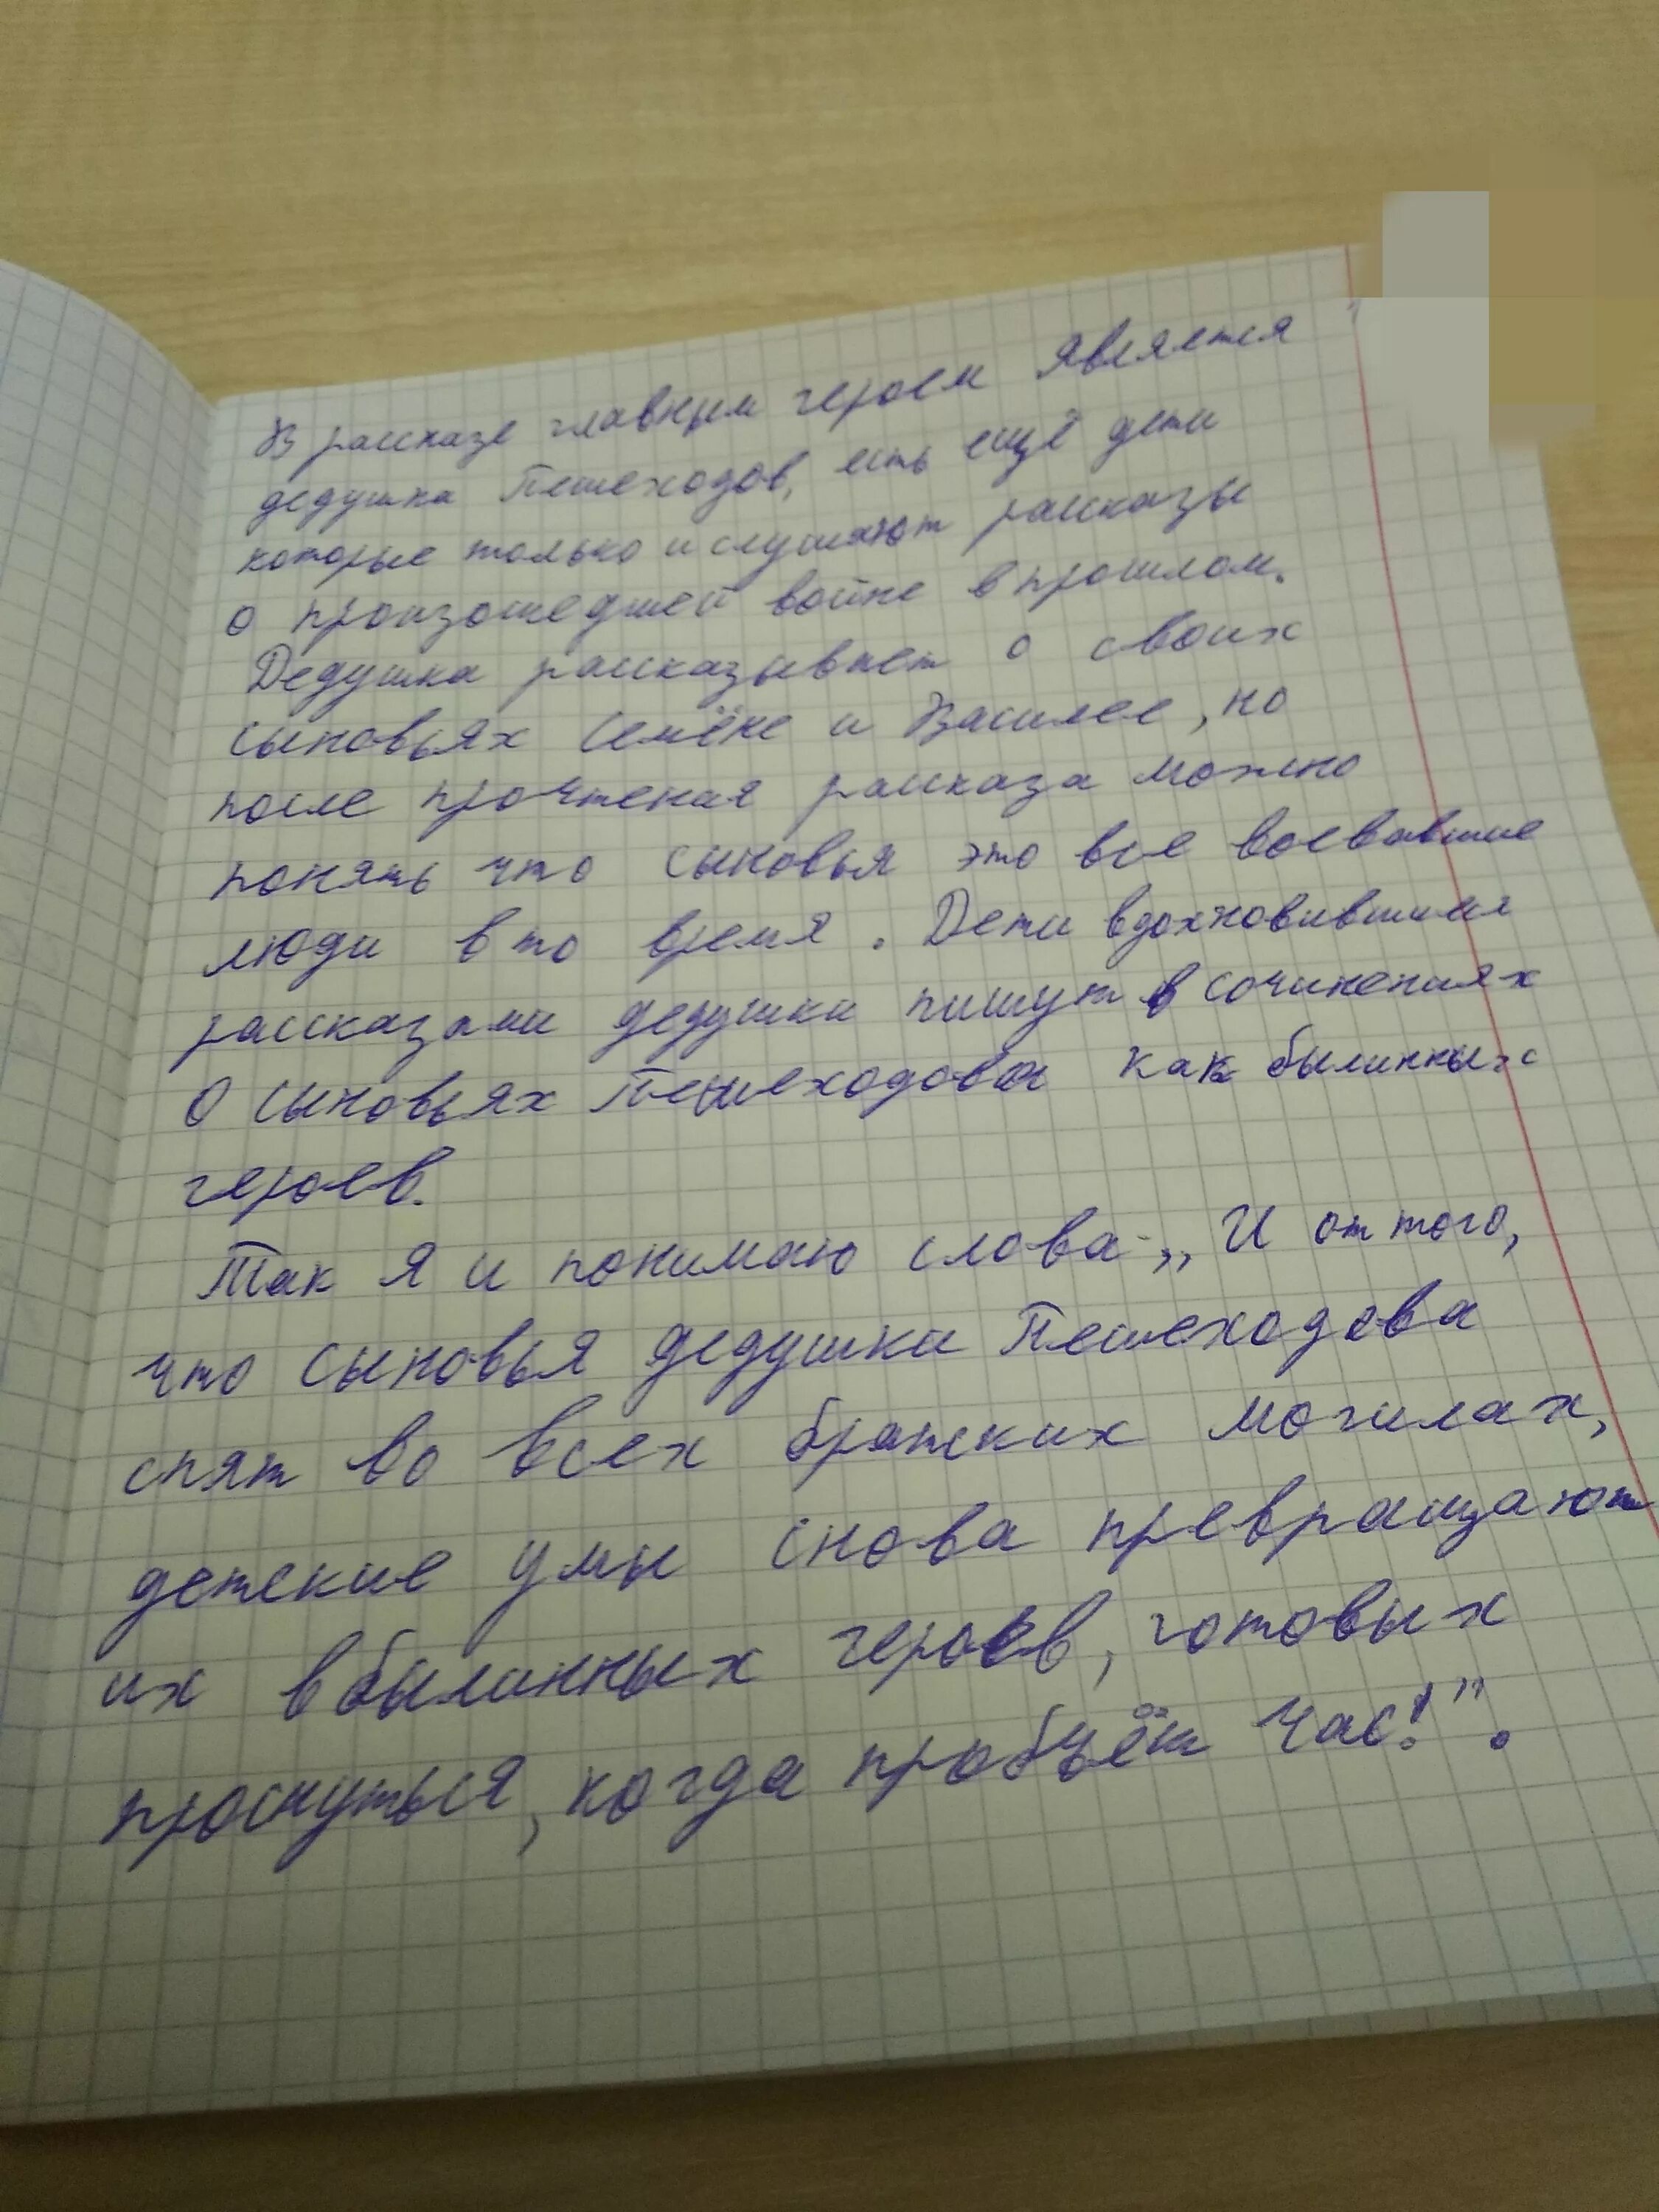 В рассказе главным героем является
дедушка Пешеходов, есть ещё дети
которые только и слушают рассказы
о произошедшей войне в прошлом.
Дедушка рассказывает о своих
сыновьях Семёне и Василее, но
после прочтения рассказа можно
понять что сыновья это все воевавшие
люди в то время. Дети вдохновившися
рассказами дедушки пишут в сочинениях
о сыновьях Пешеходова как былинных
героев.
Так я и понимаю слова „И от того,
что сыновья дедушки Пешеходова
спят во всех братских могилах,
детские умы снова превращают
их в былинных героев, готовых
проснуться, когда пробьёт час!".